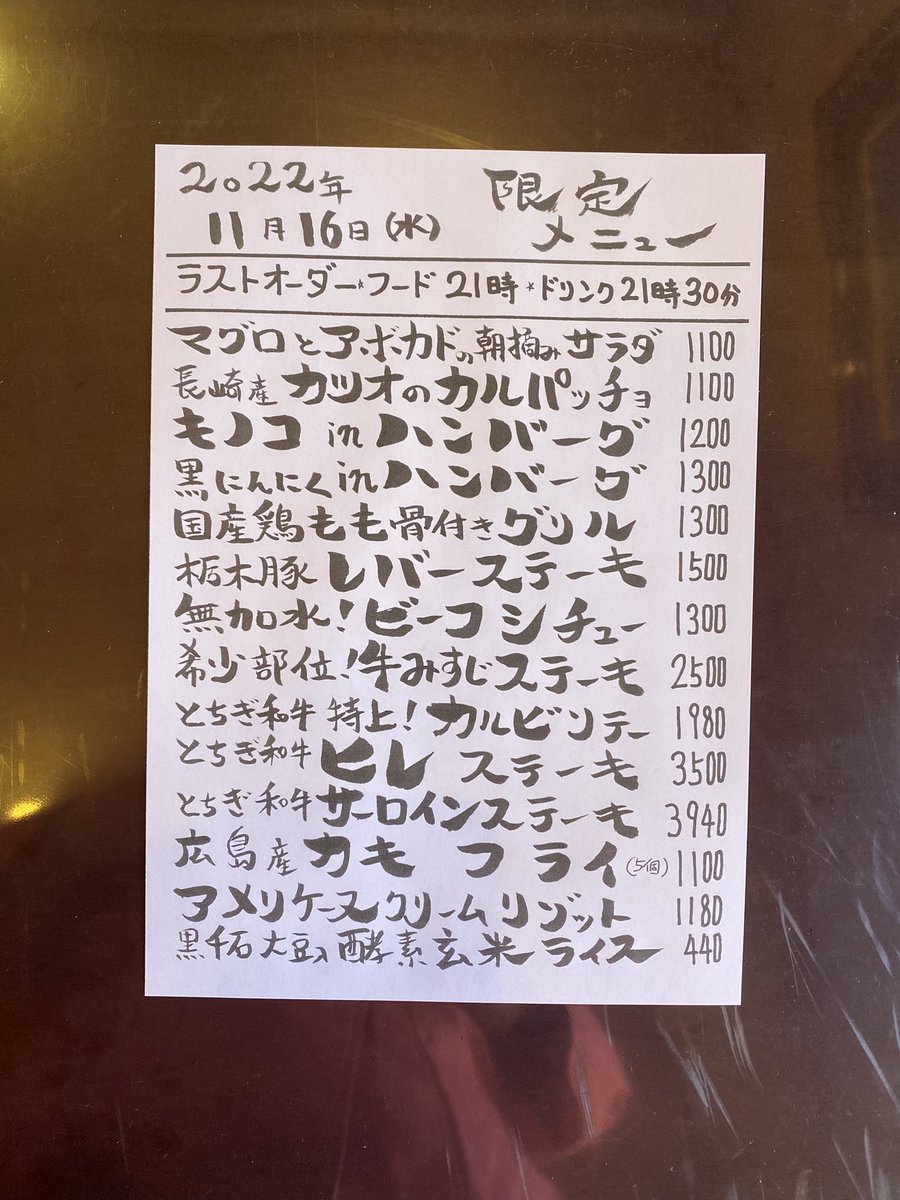 2022年
11月16日(水)
限定
メニュー
ラストオーダー*フード 21時*ドリンク21時30分
マグロとアボカドの朝摘みサラダ 1100
長崎産 カツオのカルパッチョ 1100
キノコ in ハンバーグ 1200
黒にんにく in ハンバーグ 1300
国産鶏もも骨付きグリル 1300
栃木豚 レバーステーキ 1500
無加水!ビーフシチュー 1300
希少部位!牛みすじステーキ 2500
とちぎ和牛 特上!カルビソテー 1980
とちぎ和牛 ヒレ ステーキ 3500
とちぎ和牛 サーロインステーキ 3940
広島産 カキ フライ(5個) 1100
アメリケーヌクリームリゾット 1180
黒千石大豆、酵素玄米ライス 440